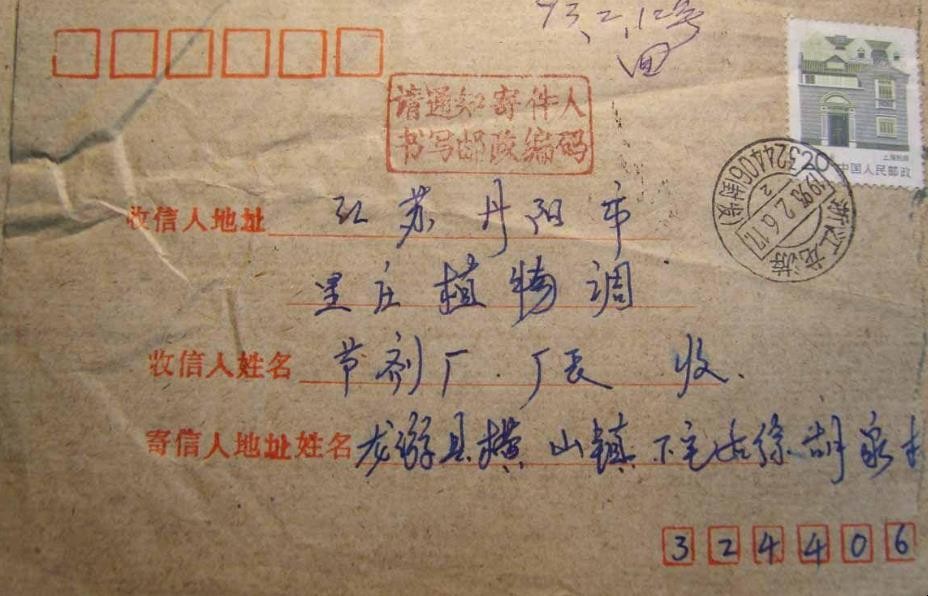 93.2.12
回
请通知寄件人
书写邮政编码
上海民居
中国人民邮政
324406(封发)
浙江龙游
收信人地址 江苏丹阳市
里庄植物调
收信人姓名 节剂厂 厂长 收.
寄信人地址姓名 龙游县横山镇下宅 徐胡家村
324406